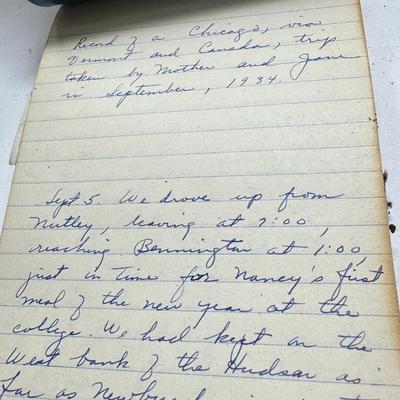 Record of a Chicago, via
Vermont and Canada, trip
taken by Mother and Jane
in September, 1934.
Sept. 5. We drove up from
Nutley, leaving at 7:00,
reaching Bennington at 1:00,
just in time for Nancy's first
meal of the new year at the
college. We had kept on the
West bank of the Hudson as
far as